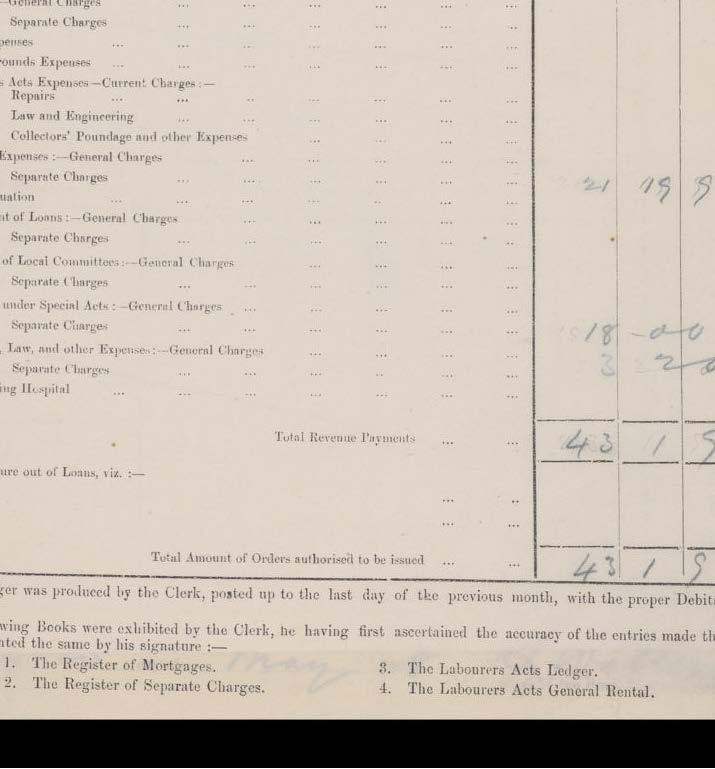 —General Charges ... ... ... ...
Separate Charges ... ... ... ... ... ..
penses ... ... ... ... ... ... ...
rounds Expenses ... ... ... ... ... ... ...
s Acts Expenses—Current Charges:—
Repairs ... ... .. ... ... ... ...
Law and Engineering ... ... ... ... ...
Collectors' Poundage and other Expenses ... ... ...
Expenses :—General Charges ... ... ... ...
Separate Charges ... ... ... ... ... ... 21 19 9
uation ... ... ... ... ... ... ...
nt of Loans :—General Charges ... ... ... ...
Separate Charges ... ... ... ... ... ...
of Local Committees:—General Charges ... ... ...
Separate Charges ... ... ... ... ... ...
under Special Acts :—General Charges ... ... ... ...
Separate Charges ... ... ... ... ... ... 18 -0 0
, Law, and other Expenses:—General Charges ... ... ...
Separate Charges ... ... ... ... ... ... 3 2 0
ing Hospital ... ... ... ... ... ... ...
Total Revenue Payments ... ... 43 1 9
ure out of Loans, viz. :—
... ..
... ...
Total Amount of Orders authorised to be issued ... ... 43 1 9
ger was produced by the Clerk, posted up to the last day of the previous month, with the proper Debit
wing Books were exhibited by the Clerk, he having first ascertained the accuracy of the entries made th
nted the same by his signature :—
1. The Register of Mortgages. 3. The Labourers Acts Ledger.
2. The Register of Separate Charges. 4. The Labourers Acts General Rental.